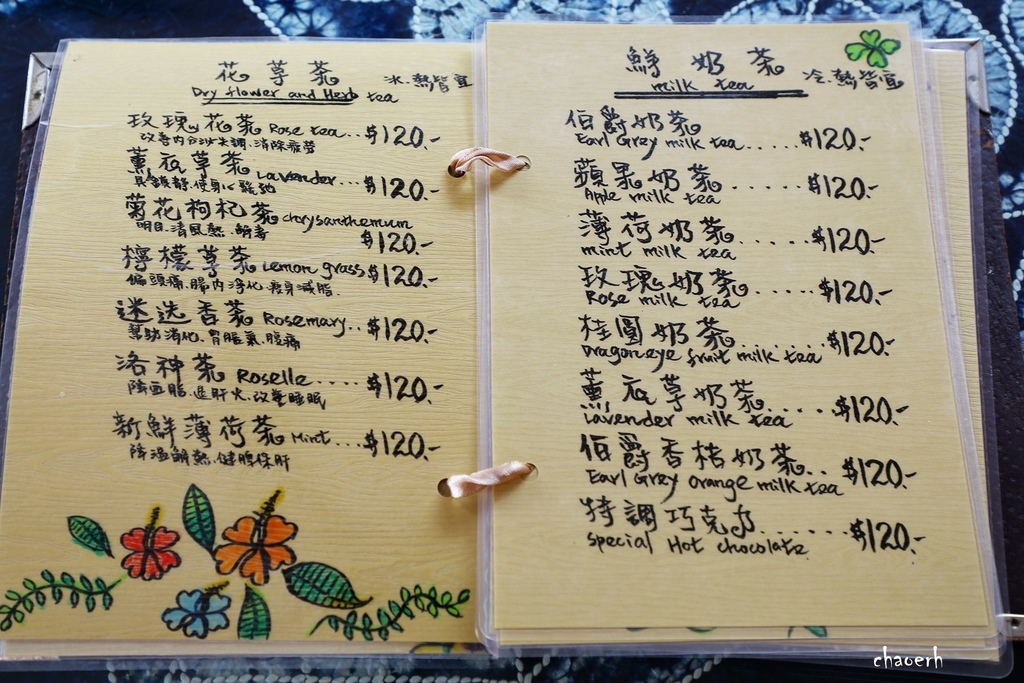 花草茶 冰.熱皆宜
Dry flower and Herb tea
玫瑰花茶 Rose tea..$120.-
改善內分泌失調.消除疲勞
薰衣草茶 Lavender...$120.-
具鎮靜.使身心鬆弛
菊花枸杞茶 chrysanthemum
明目.清風熱.解毒 $120.-
檸檬草茶 Lemon grass $120.-
偏頭痛.腸內淨化.瘦身減脂.
迷迭香茶 Rosemary..$120.-
幫助消化.胃脹氣.腹痛
洛神茶 Roselle....$120.-
降血脂.退肝火.改善睡眠
新鮮薄荷茶 Mint...$120.-
降溫解熱.健脾保肝
鮮奶茶 冷.熱皆宜
milk tea
伯爵奶茶
Earl Grey milk tea.....$120.-
蘋果奶茶.....$120.-
Apple milk tea
薄荷奶茶.....$120.-
mint milk tea
玫瑰奶茶.....$120.-
Rose milk tea
桂圓奶茶
Dragon eye fruit milk tea $120.-
薰衣草奶茶
Lavender milk tea....$120.-
伯爵香桔奶茶..$120.-
Earl Grey orange milk tea
特調巧克力......$120.-
special Hot chocolate
chaoerh